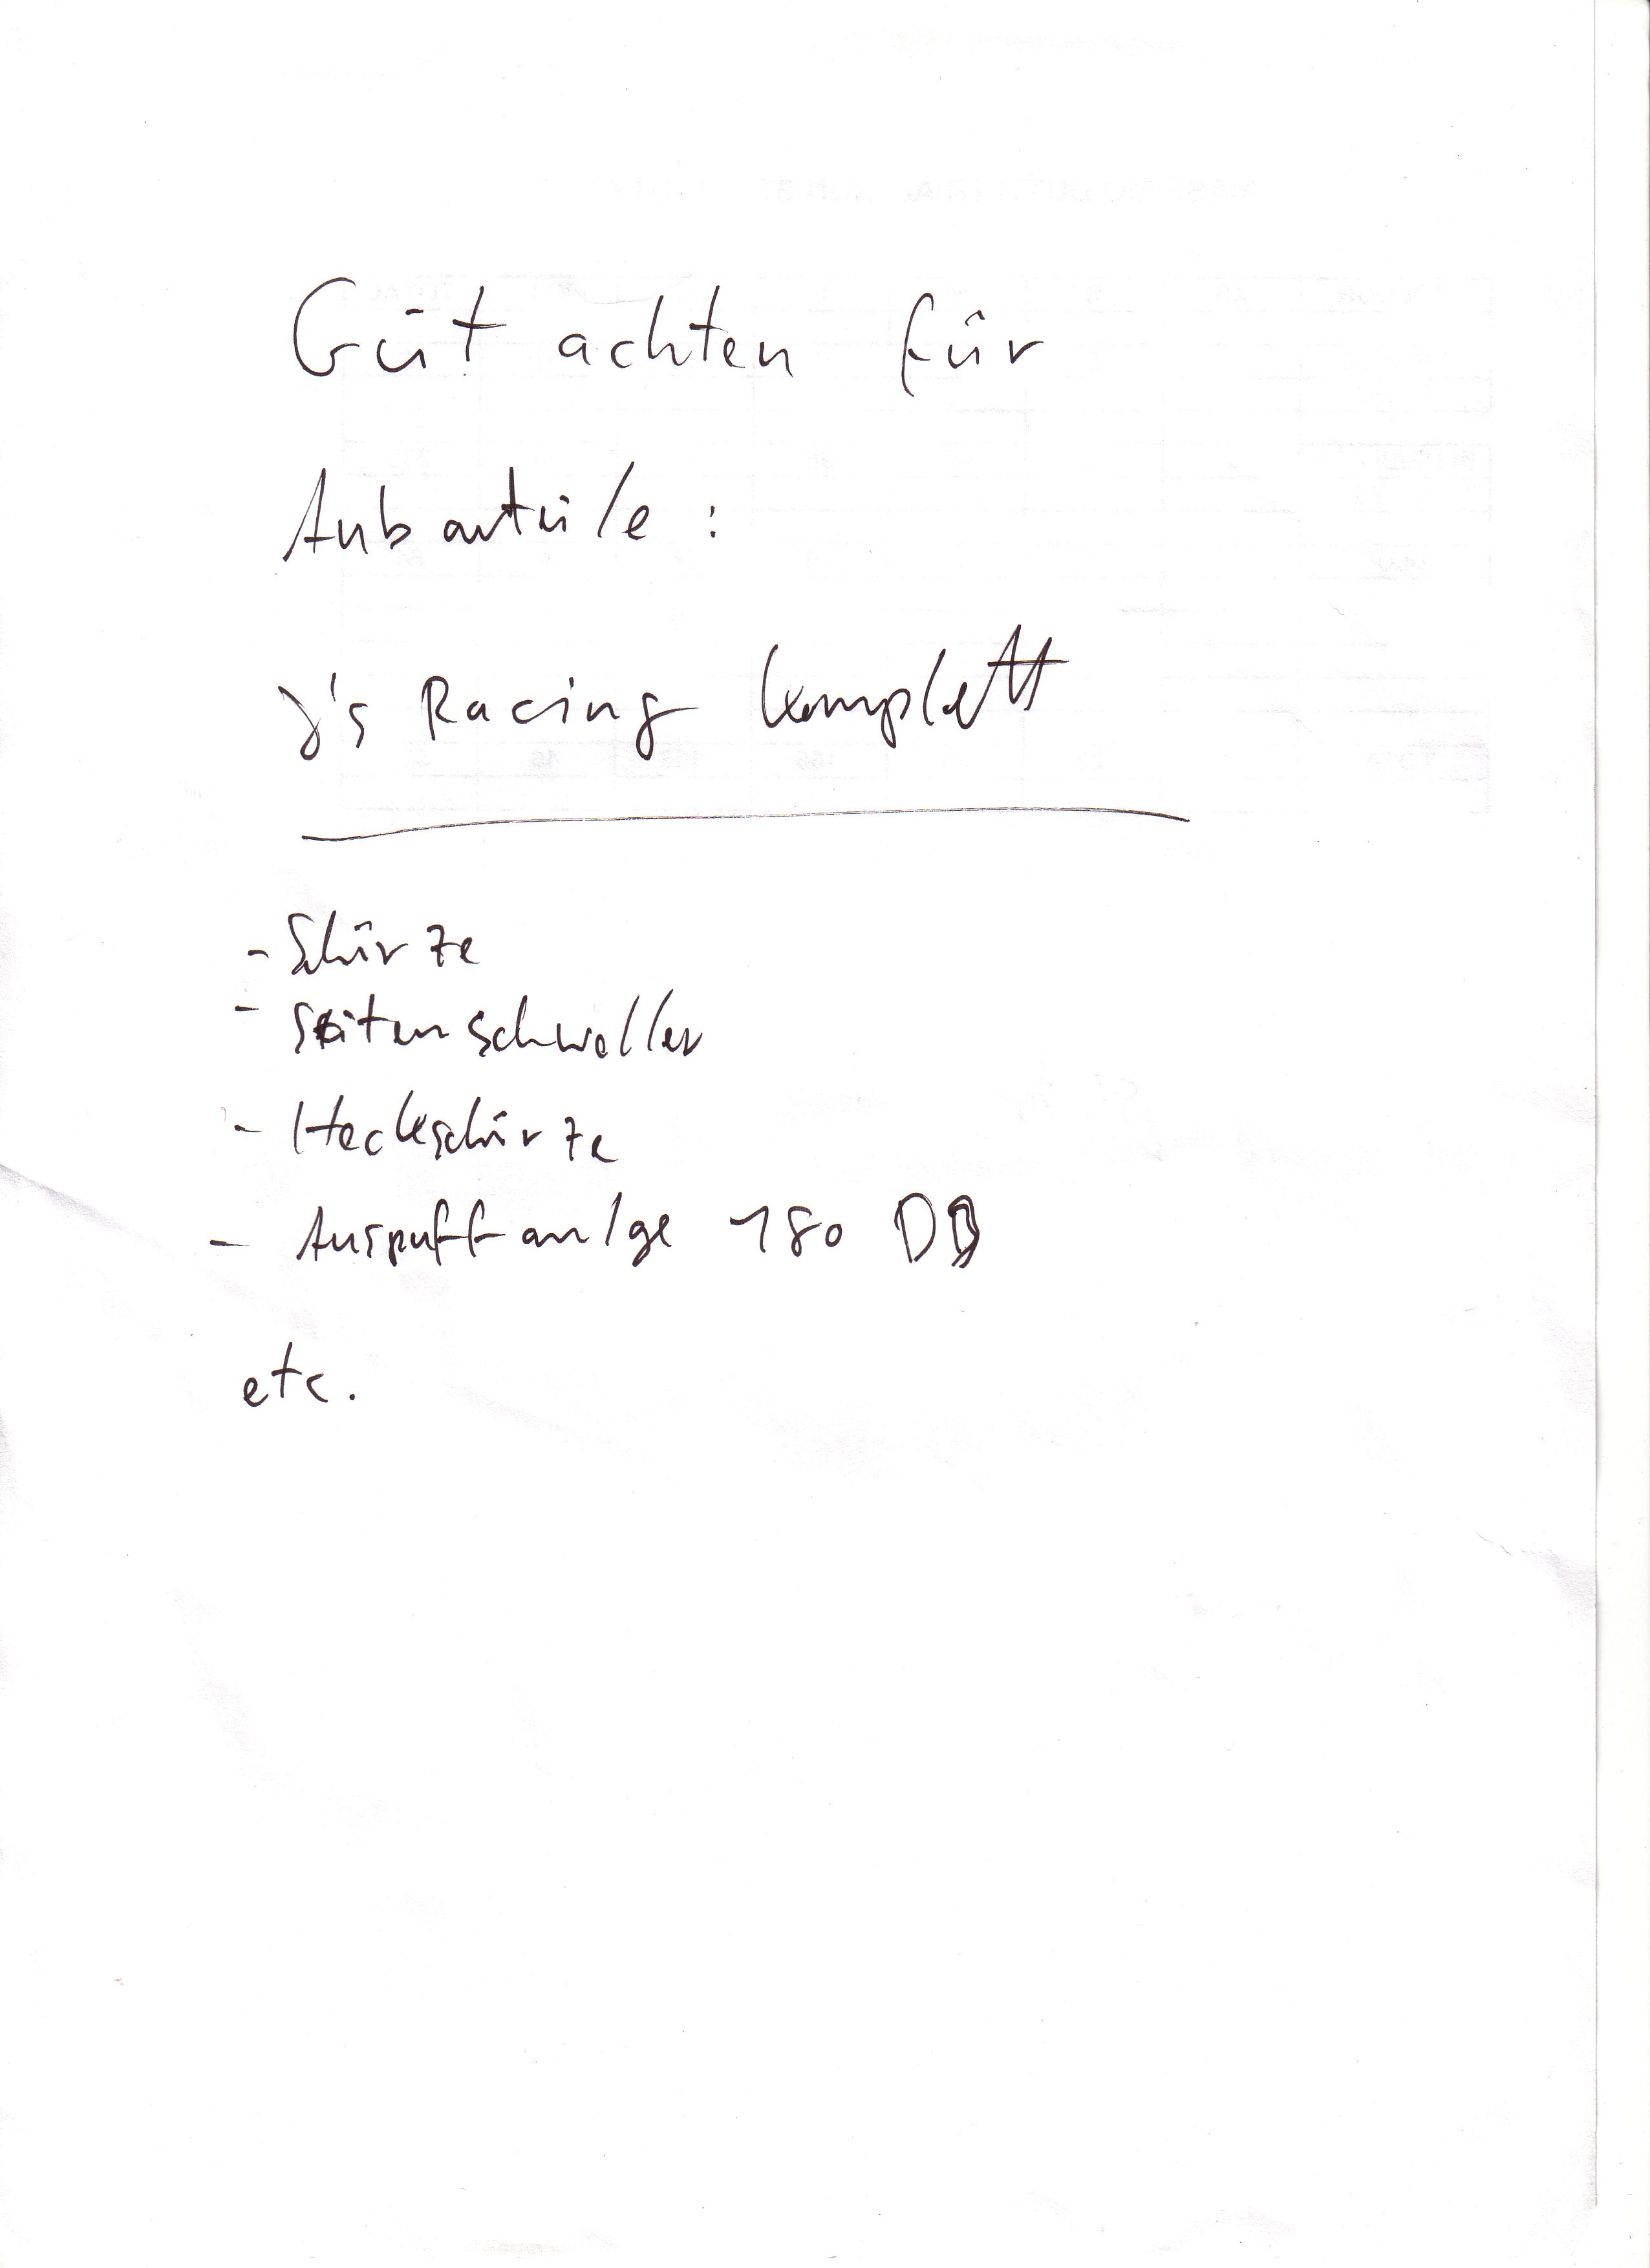 Gut achten für
Anbauteile :
J's Racing komplett
- Schürze
- Seitenschweller
- Heckschürze
- Auspuffanlge 180 DB
etc.